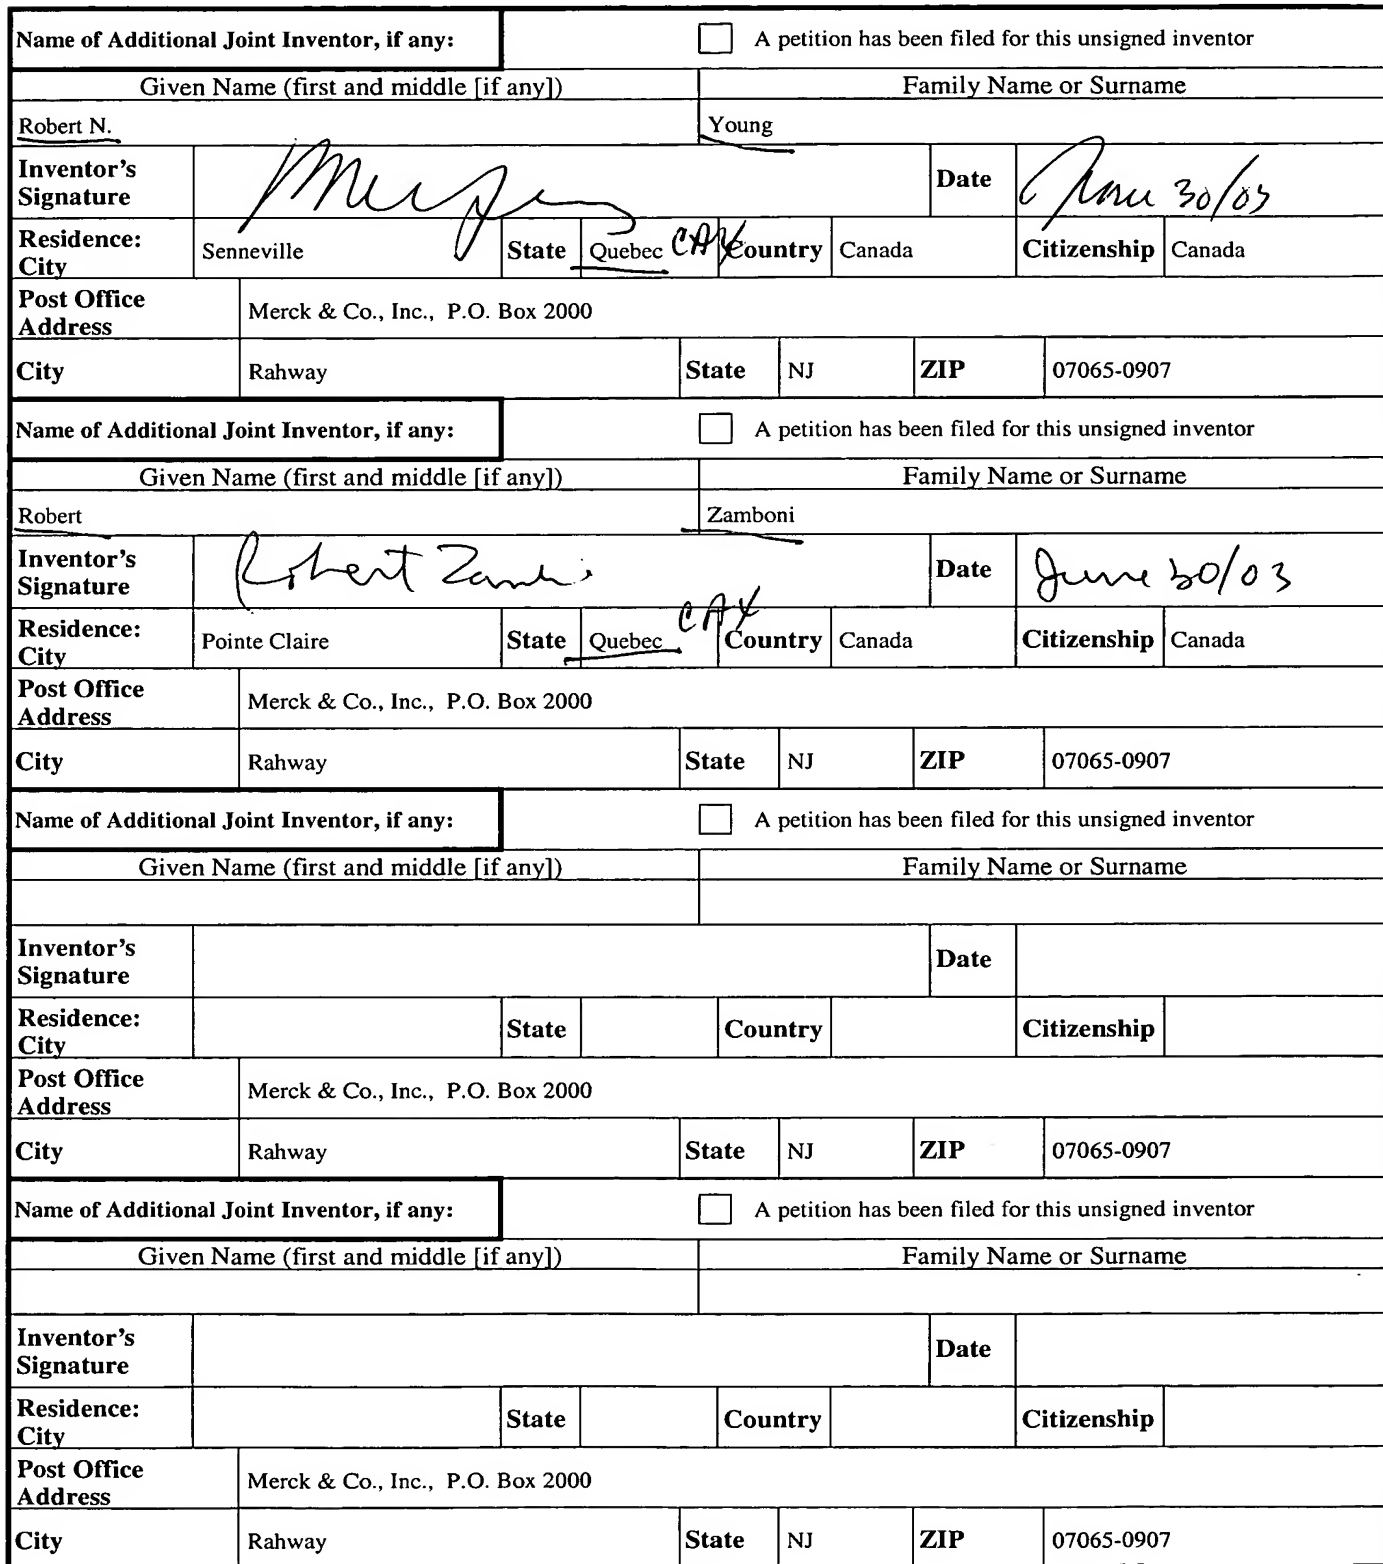 Name of Additional Joint Inventor, if any: A petition has been filed for this unsigned inventor
Given Name (first and middle [if any]) Family Name or Surname
Robert N. Young
Inventor's Signature Date June 30/03
Residence: City Senneville State Quebec CAX Country Canada Citizenship Canada
Post Office Address Merck & Co., Inc., P.O. Box 2000
City Rahway State NJ ZIP 07065-0907
Name of Additional Joint Inventor, if any: A petition has been filed for this unsigned inventor
Given Name (first and middle [if any]) Family Name or Surname
Robert Zamboni
Inventor's Signature Robert Zamboni Date June 30/03
Residence: City Pointe Claire State Quebec CAX Country Canada Citizenship Canada
Post Office Address Merck & Co., Inc., P.O. Box 2000
City Rahway State NJ ZIP 07065-0907
Name of Additional Joint Inventor, if any: A petition has been filed for this unsigned inventor
Given Name (first and middle [if any]) Family Name or Surname
Inventor's Signature Date
Residence: City State Country Citizenship
Post Office Address Merck & Co., Inc., P.O. Box 2000
City Rahway State NJ ZIP 07065-0907
Name of Additional Joint Inventor, if any: A petition has been filed for this unsigned inventor
Given Name (first and middle [if any]) Family Name or Surname
Inventor's Signature Date
Residence: City State Country Citizenship
Post Office Address Merck & Co., Inc., P.O. Box 2000
City Rahway State NJ ZIP 07065-0907